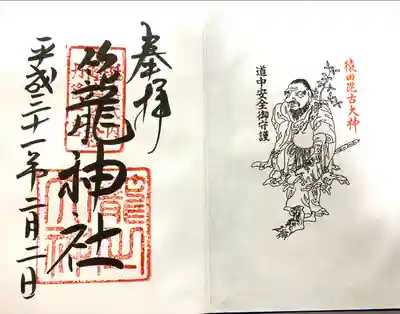 猿田毘古大神
道中安全御守護
奉拝
籠神社
平成二十一年二月二日
籠之大神